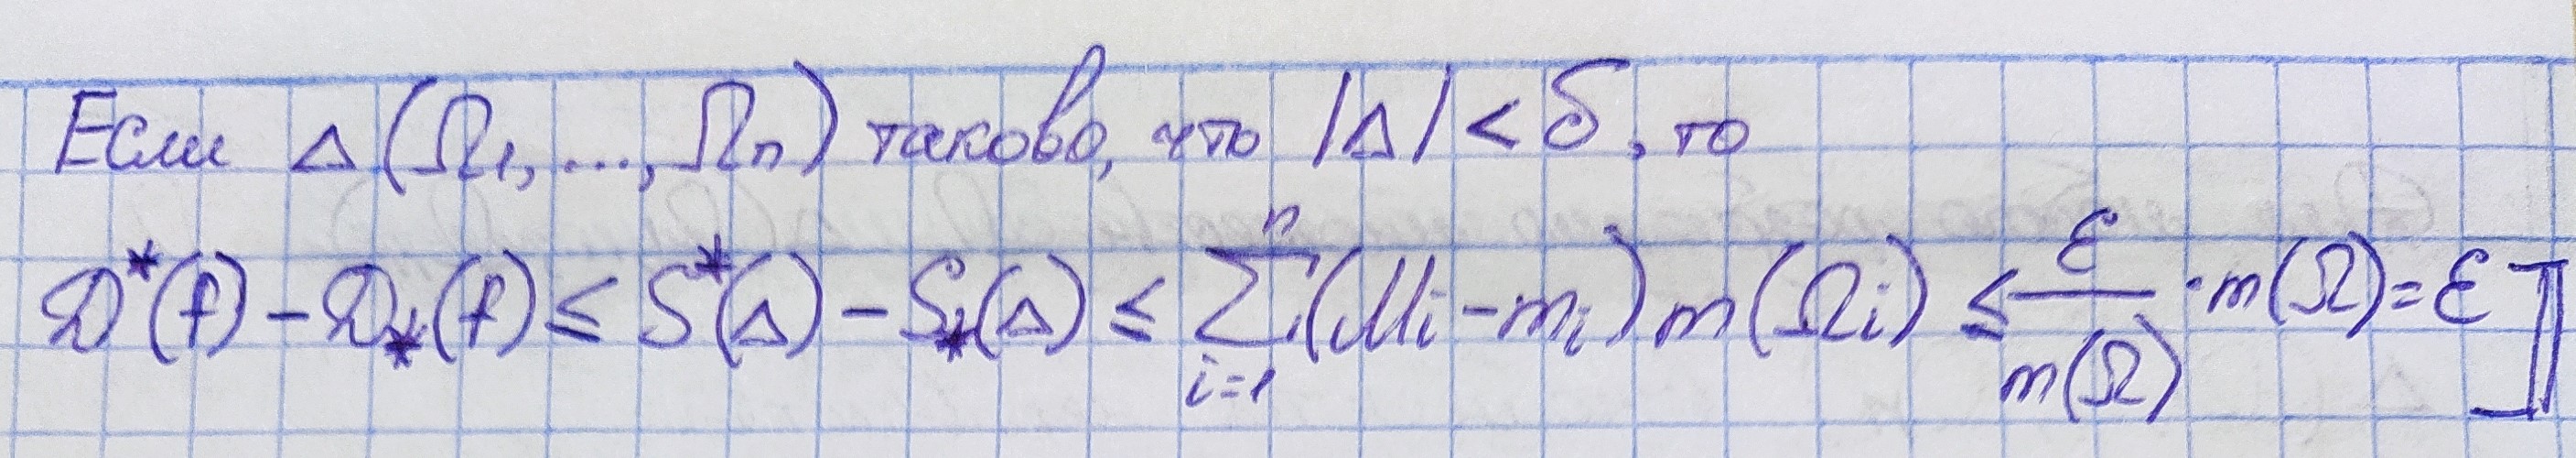 Если Δ(Ω₁,...,Ωₙ) таково, что |Δ| < δ, то
𝒟*(f) − 𝒟_*(f) ≤ S*(Δ) − S_*(Δ) ≤ ∑_{i=1}^{n} (Mᵢ − mᵢ) m(Ωᵢ) ≤ ε/m(Ω) · m(Ω) = ε ]]